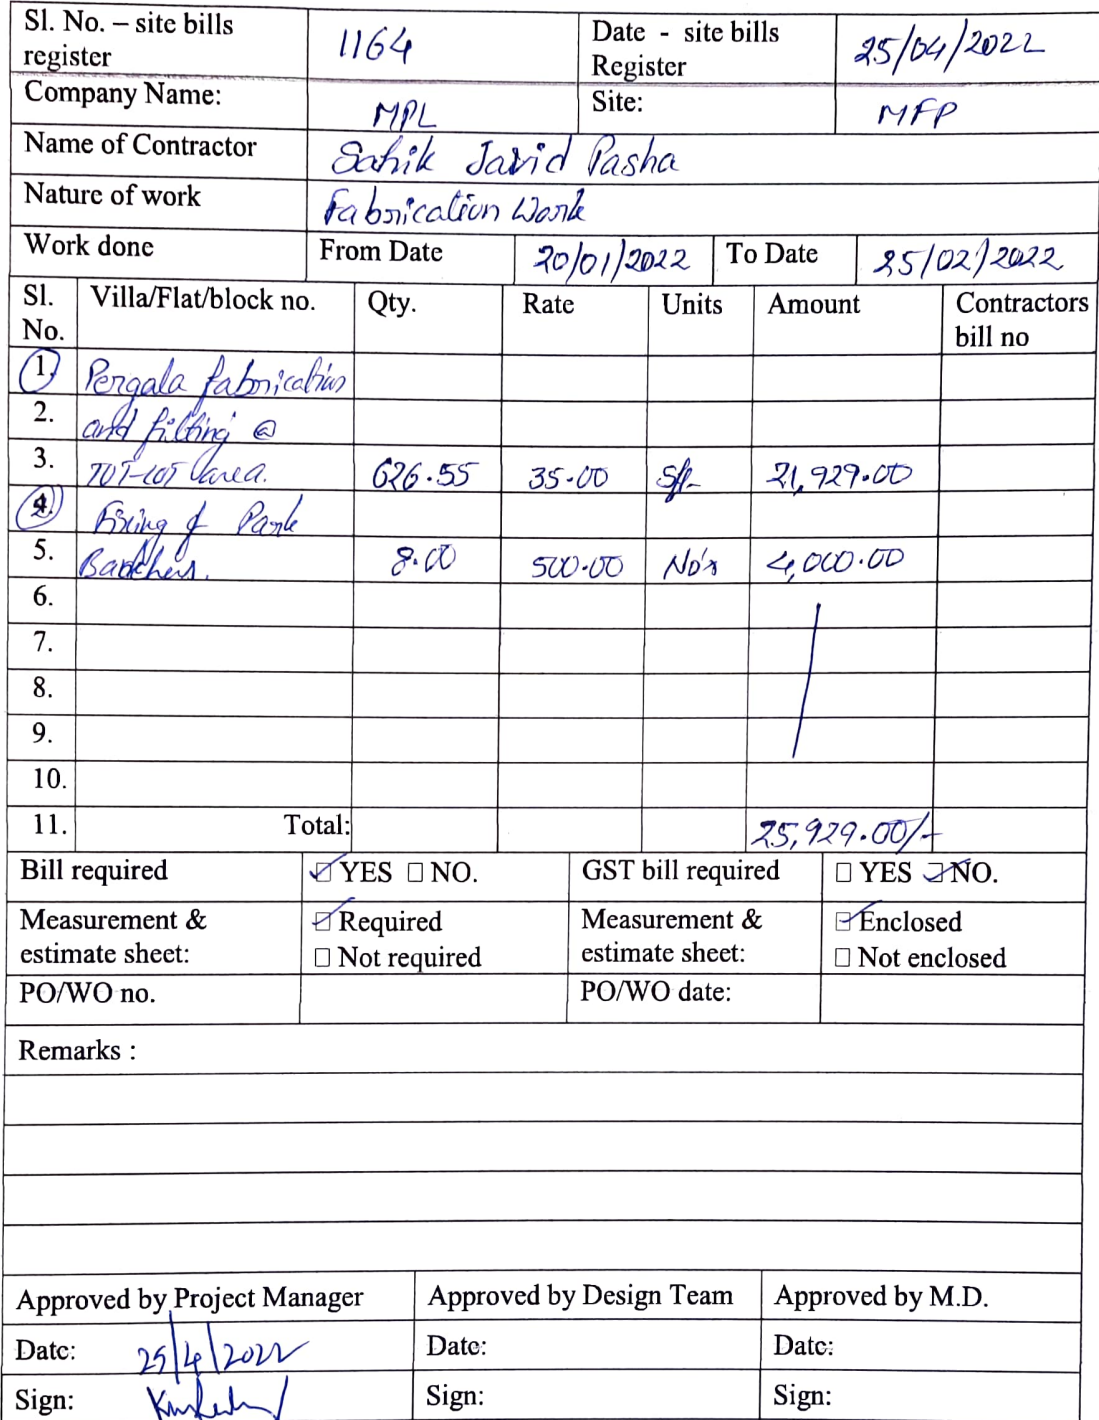 Sl. No. – site bills register 1164 Date - site bills Register 25/04/2022
Company Name: MPL Site: MFP
Name of Contractor Sahik Javid Pasha
Nature of work Fabrication Work
Work done From Date 20/01/2022 To Date 25/02/2022
Sl. No. Villa/Flat/block no. Qty. Rate Units Amount Contractors bill no
1. Pergala fabrication
2. and fitting @
3. TOT-LOT area. 626.55 35.00 Sft 21,929.00
4. Fixing of Park
5. 8.00 500.00 No's 4,000.00
6.
7.
8.
9.
10.
11. Total: 25,929.00/-
Bill required YES NO. GST bill required YES NO.
Measurement & estimate sheet: Required Not required Measurement & estimate sheet: Enclosed Not enclosed
PO/WO no. PO/WO date:
Remarks :
Approved by Project Manager Approved by Design Team Approved by M.D.
Date: 25/4/2022 Date: Date:
Sign: Sign: Sign: